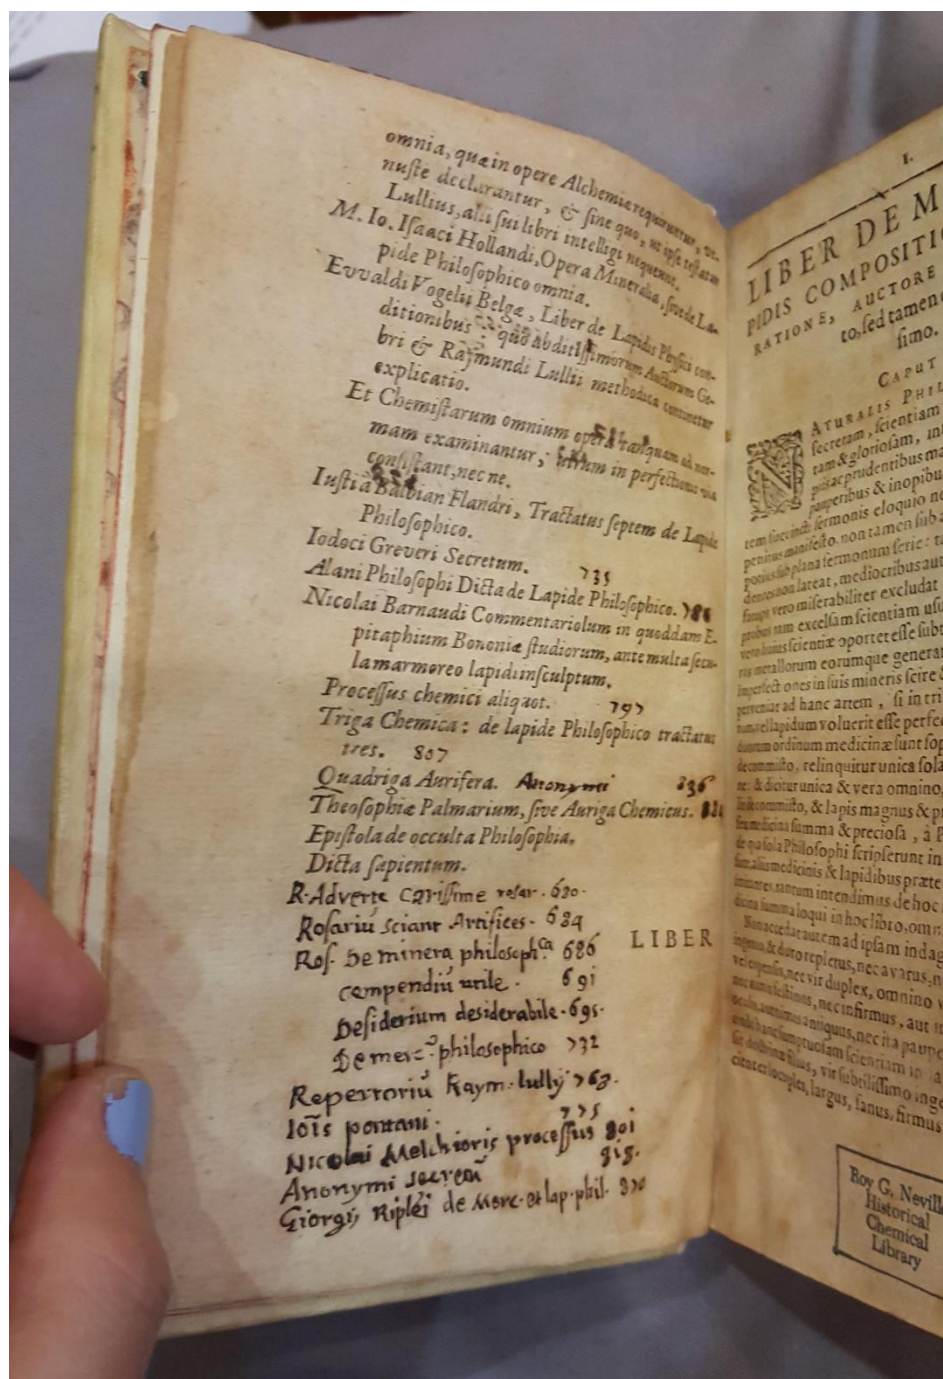 omnia, quæ in opere Alchemiæ requiruntur, ve-
nuste declarantur, & sine quo, ut ipse testatur
Lullius, alii sui libri intelligi nequeunt.
M. Io. Isaaci Hollandi, Opera Mineralia, sive de La-
pide Philosophico omnia.
Evvaldi Vogelii Belgæ, Liber de Lapidis Physici con-
ditionibus quo abditissimorum Auctorum Ge-
bri & Raymundi Lullii methodica continetur
explicatio.
Et Chemistarum omnium opera tanquam ad nor-
mam examinantur, utrum in perfectionis via
consistant, nec ne.
Iusti à Balbian Flandri, Tractatus septem de Lapide
Philosophico.
Iodoci Greveri Secretum. 735
Alani Philosophi Dicta de Lapide Philosophico.
Nicolai Barnaudi Commentariolum in quoddam E-
pitaphium Bononiæ studiorum, ante multa secu-
la marmoreo lapidi insculptum.
Processus chemici aliquot. 797
Triga Chemica: de lapide Philosophico tractatus
tres. 807
Quadriga Aurifera. Anonymi 836
Theosophiæ Palmarium, sive Auriga Chemicus.
Epistola de occulta Philosophia.
Dicta sapientum.
R. Adverte carissime rosar. 680.
Rosariũ sciant Artifices. 684
Ros. De minera philosoph.ca 686
compendiũ utile. 691
Desiderium desiderabile. 695.
De merc. philosophico 732
Repertoriũ Raym. lullij 763.
Iois pontani. 775
Nicolai Melchioris processus 801
Anonymi secretũ 818.
Giorgij Riplei de Merc. et lap. phil. 820
LIBER
I.
LIBER DE M
PIDIS COMPOSITIO
RATIONE, AUCTORE
to, sed tamen
simo.
CAPUT
NATURALIS PHIL
secretam, scientiam
tam & gloriosam, in
piis ac prudentibus ma
pauperibus & inopibu
tem succincti sermonis eloquio
penitus manifesto. non tamen sub
potius sub plana sermonum serie: t
dentes non lateat, mediocribus aut
fatuos vero miserabiliter excludat
probus tam excelsam scientiam usu
vero huius scientiæ oportet esse subt
ras metallorum eorumque generat
imperfectiones in suis mineris scire
perveniat ad hanc artem, si in tri
tum, vel lapidum voluerit esse perfe
duorum ordinum medicinæ sunt sop
de commisto, relinquitur unica sola
ne: & dicitur unica & vera omnino,
lis de commisto, & lapis magnus & p
seu medicina summa & preciosa, à P
de qua sola Philosophi scripserunt in
simalius medicinis & lapidibus præte
tantum intendimus de hoc
dicina summa loqui in hoc libro, omn
Non accedat autem ad ipsam indag
ingenio, & duro repletus, nec avarus,
vel expensis, nec vir duplex, omnino
nec nimis festinus, nec infirmus, aut
oculis, aut nimis antiquus, nec ita paupe
unde hanc sumptuosam scientiam
sit doctrinæ filius, vir subtilissimo inge
cienter locuples, largus, sanus, firmus
Roy G. Neville
Historical
Chemical
Library